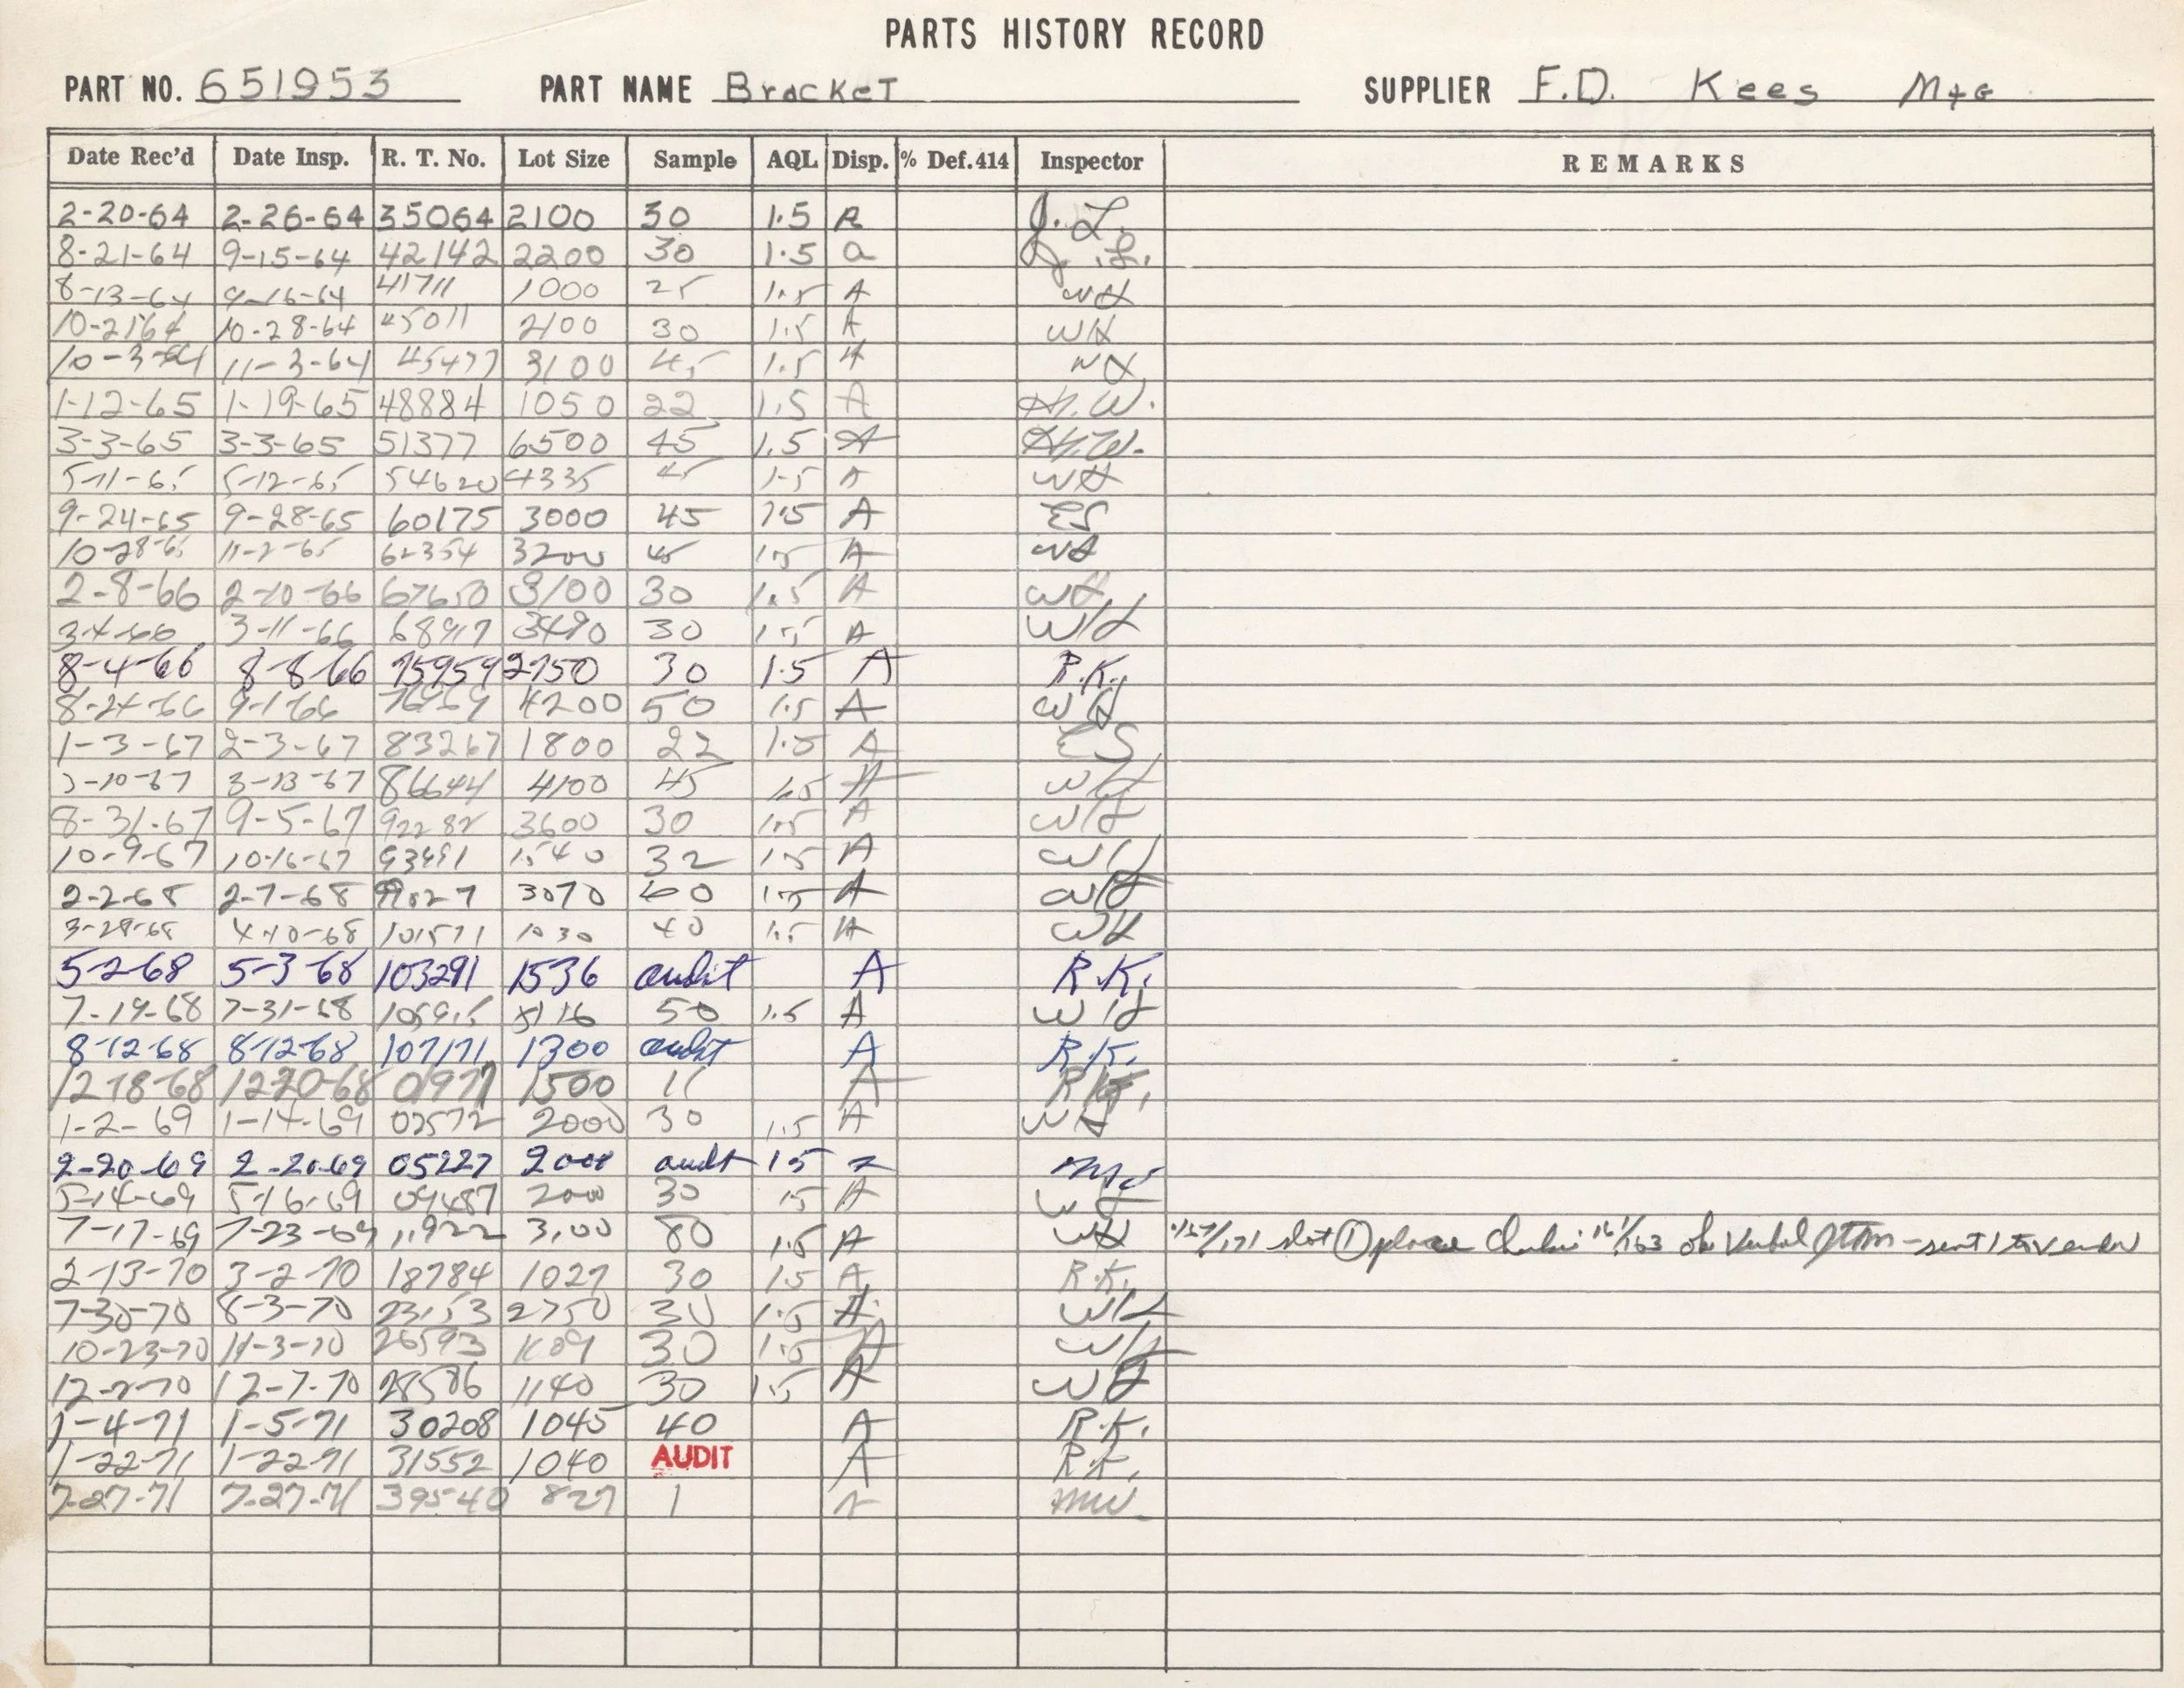 PARTS HISTORY RECORD
PART NO. 651953 PART NAME Bracket SUPPLIER F.D. Kees Mfg
Date Rec'd Date Insp. R. T. No. Lot Size Sample AQL Disp. % Def.414 Inspector REMARKS
2-20-64 2-26-64 35064 2100 30 1.5 A J.L.
8-21-64 9-15-64 42142 2200 30 1.5 a J.L.
8-13-64 9-16-64 41711 1000 25 1.5 A WH
10-2164 10-28-64 45011 2100 30 1.5 A WH
10-3-64 11-3-64 45477 3100 45 1.5 A WH
1-12-65 1-19-65 48884 1050 22 1.5 A H.W.
3-3-65 3-3-65 51377 6500 45 1.5 A H.W.
5-11-65 5-12-65 54620 4335 45 1-5 A WH
9-24-65 9-28-65 60175 3000 45 1.5 A ES
10-28-65 11-2-65 62354 3200 45 1.5 A WH
2-8-66 2-10-66 67650 3100 30 1.5 A WH
3-4-66 3-11-66 30 1.5 A WH
8-4-66 8-8-66 75959 2750 30 1.5 A R.K.
8-24-66 9-1-66 4200 50 1.5 A WH
1-3-67 2-3-67 83267 1800 22 1.5 A ES
3-10-67 3-13-67 86644 4100 45 1.5 A WH
8-31-67 9-5-67 92282 3600 30 1.5 A WH
10-9-67 10-16-67 93491 1540 32 1.5 A WH
2-2-68 2-7-68 3070 1.5 A WH
3-29-68 4-10-68 101571 1030 40 1.5 A WH
5-2-68 5-3-68 103291 1536 audit A R.K.
7-19-68 7-31-68 50 1.5 A WH
8-12-68 8-12-68 107171 1300 audit A R.K.
12-18-68 12-20-68 01971 1500 11 A R.K.
1-2-69 1-14-69 02572 2000 30 1.5 A WH
2-20-69 2-20-69 05227 2000 audit 15
5-14-69 5-16-69 09487 2000 30 15 A WH
7-17-69 7-23-69 11922 3100 80 1.5 A WH slot ① place ok Verbal - sent 1 to vendor
2-13-70 3-2-70 18784 1027 30 15 A R.K.
7-30-70 8-3-70 23153 2750 30 1.5 A WH
10-23-70 11-3-70 26593 30 1.5 A WH
12-2-70 12-7-70 28586 1140 30 1.5 A WH
1-4-71 1-5-71 30208 1045 40 A R.K.
1-22-71 1-22-71 31552 1040 AUDIT A R.K.
7-27-71 7-27-71 39540 827 1 MW